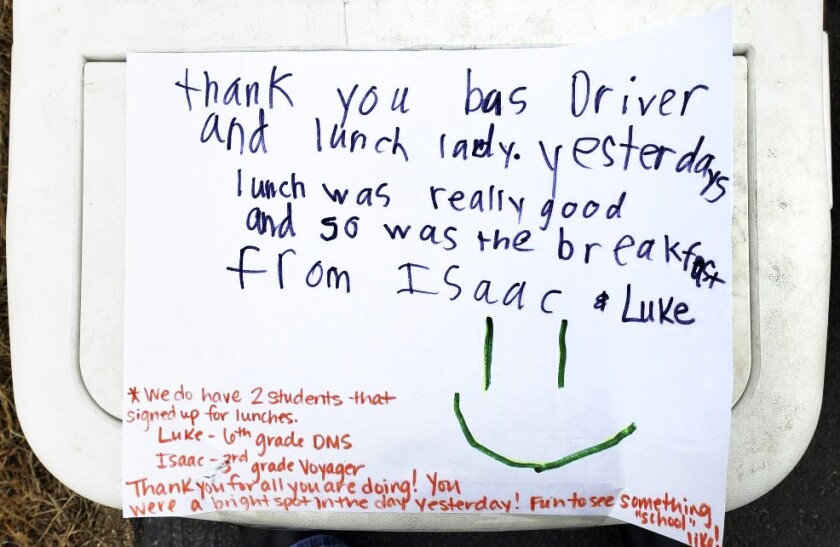 thank you bas Driver
and lunch lady. yesterdays
lunch was really good
and so was the breakfast
from Isaac & Luke
* We do have 2 students that
signed up for lunches.
Luke - 6th grade DMS
Isaac - 3rd grade Voyager
Thank you for all you are doing! You
were a bright spot in the day yesterday! Fun to see something
"school"
like!